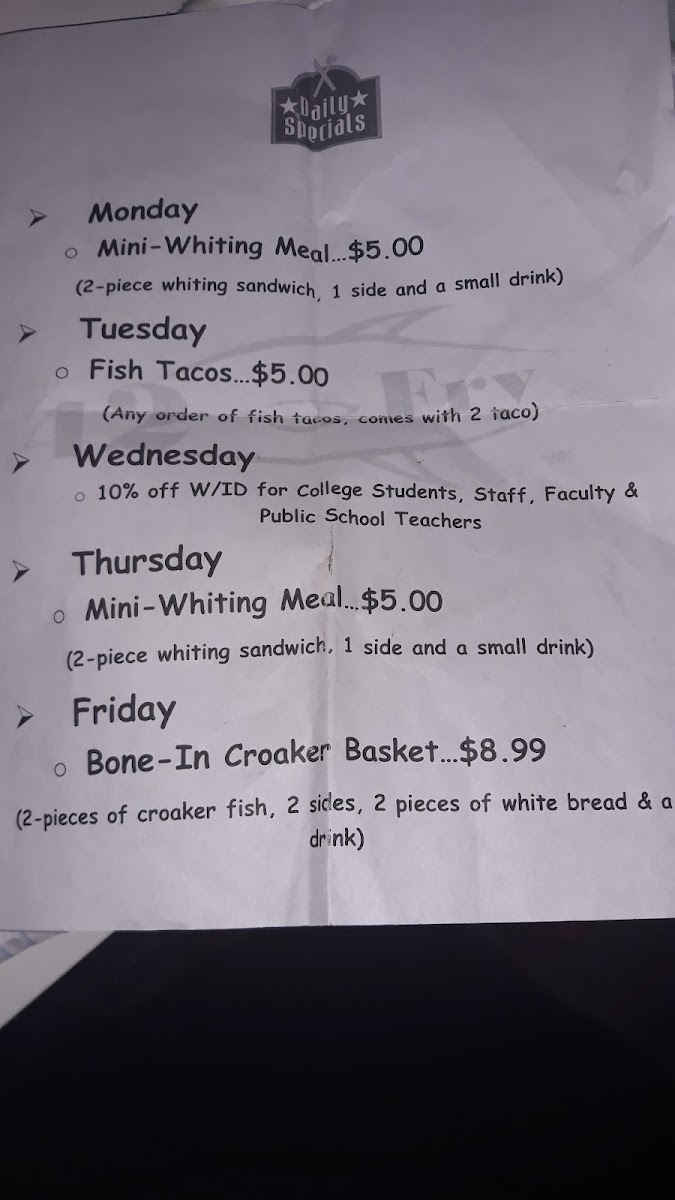 Daily
Specials
Monday
Mini-Whiting Meal...$5.00
(2-piece whiting sandwich, 1 side and a small drink)
Tuesday
Fish Tacos...$5.00
(Any order of fish tacos, comes with 2 taco)
Wednesday
10% off W/ID for College Students, Staff, Faculty &
Public School Teachers
Thursday
Mini-Whiting Meal...$5.00
(2-piece whiting sandwich, 1 side and a small drink)
Friday
Bone-In Croaker Basket...$8.99
(2-pieces of croaker fish, 2 sides, 2 pieces of white bread & a
drink)
42 Fry